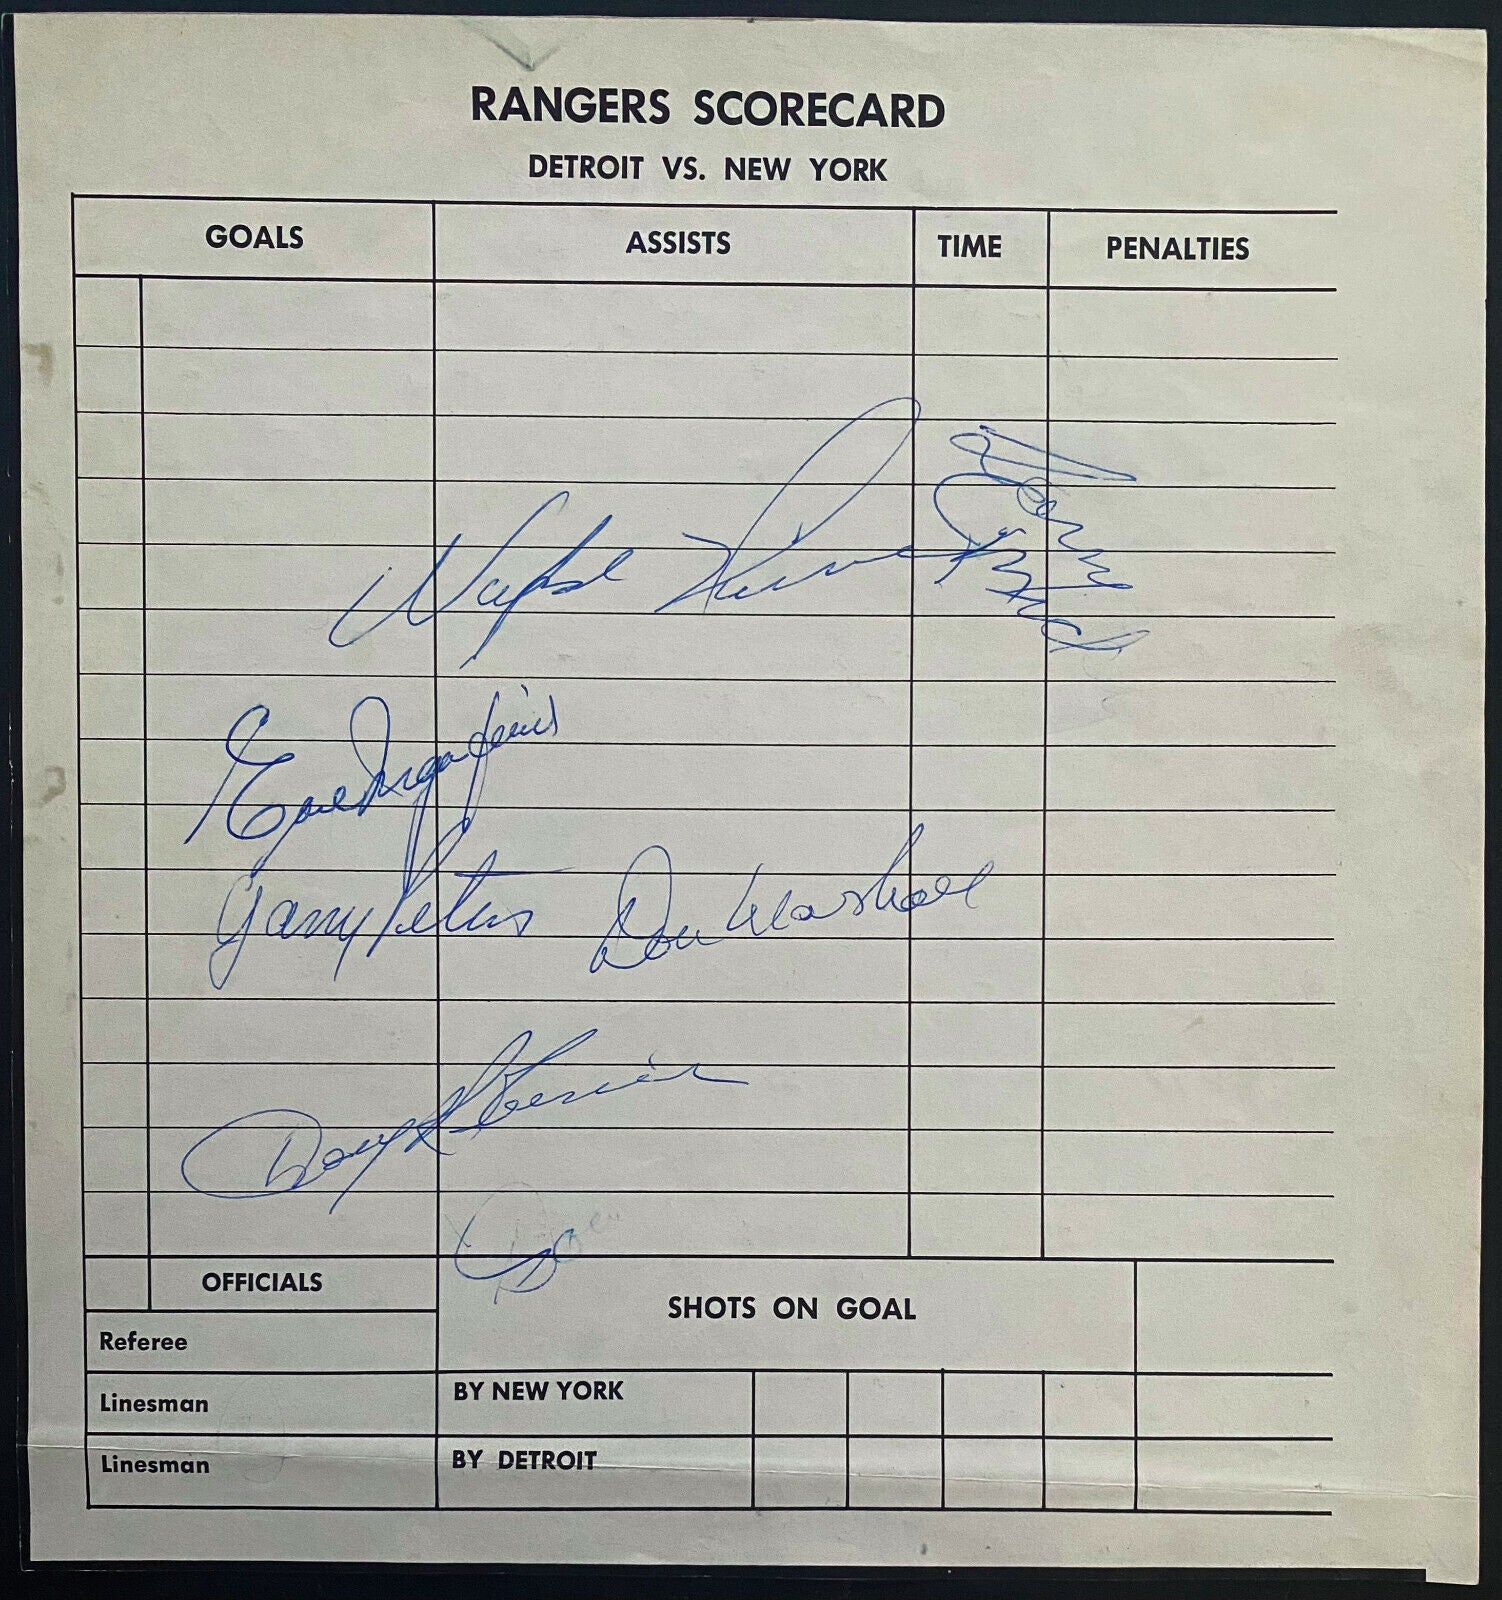 RANGERS SCORECARD
DETROIT VS. NEW YORK
GOALS ASSISTS TIME PENALTIES
Wayne
Earl Ingarfield
Gary Peters Don Marshall
Doug Robinson
Do
OFFICIALS
SHOTS ON GOAL
Referee
Linesman BY NEW YORK
Linesman BY DETROIT